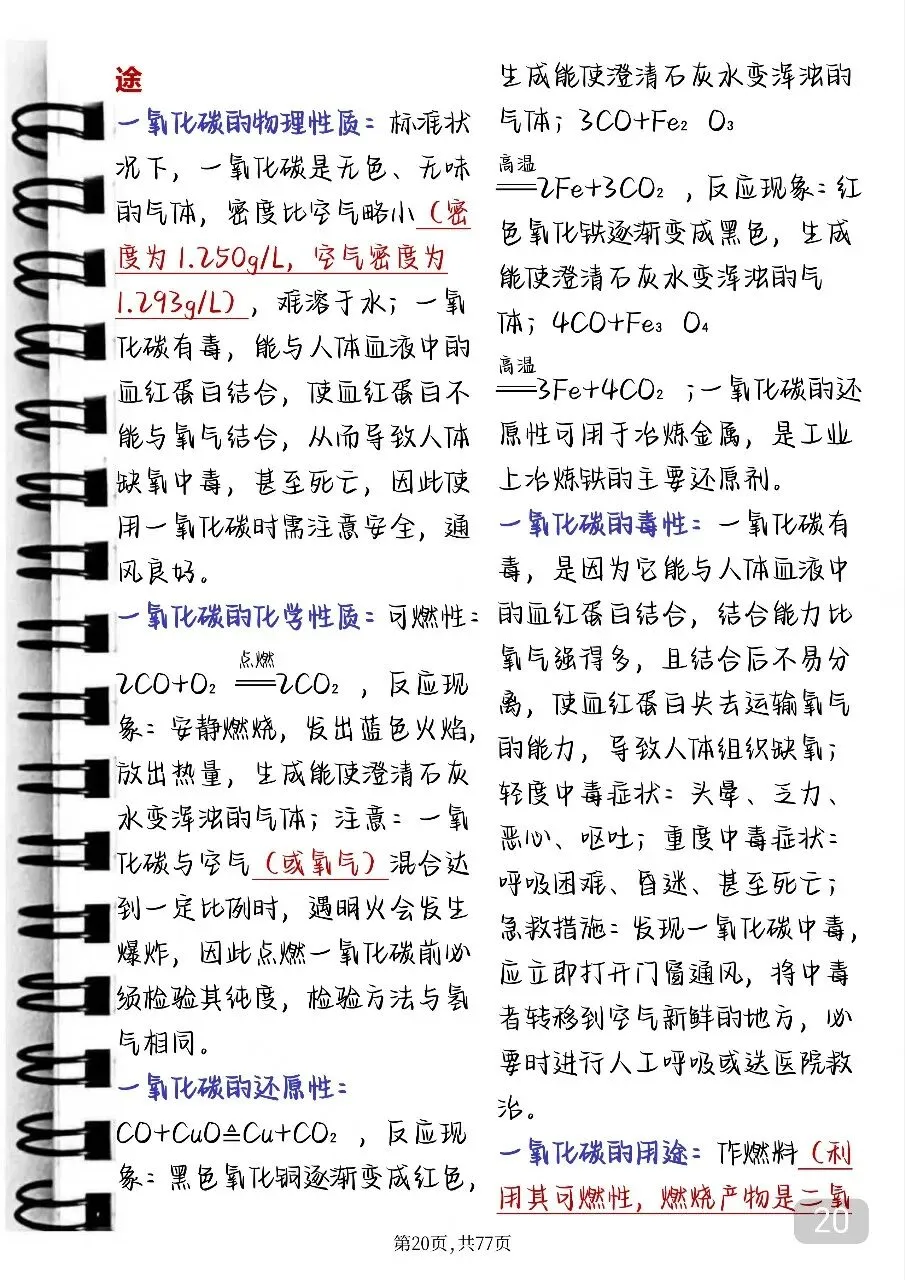 途
一氧化碳的物理性质：标准状
况下，一氧化碳是无色、无味
的气体，密度比空气略小（密
度为1.250g/L，空气密度为
1.293g/L），难溶于水；一氧
化碳有毒，能与人体血液中的
血红蛋白结合，使血红蛋白不
能与氧气结合，从而导致人体
缺氧中毒，甚至死亡，因此使
用一氧化碳时需注意安全，通
风良好。
一氧化碳的化学性质：可燃性：
点燃
2CO+O₂══2CO₂ ，反应现
象：安静燃烧，发出蓝色火焰，
放出热量，生成能使澄清石灰
水变浑浊的气体；注意：一氧
化碳与空气（或氧气）混合达
到一定比例时，遇明火会发生
爆炸，因此点燃一氧化碳前必
须检验其纯度，检验方法与氢
气相同。
一氧化碳的还原性：
CO+CuO≜Cu+CO₂ ，反应现
象：黑色氧化铜逐渐变成红色，
生成能使澄清石灰水变浑浊的
气体；3CO+Fe₂ O₃
高温
══2Fe+3CO₂ ，反应现象：红
色氧化铁逐渐变成黑色，生成
能使澄清石灰水变浑浊的气
体；4CO+Fe₃ O₄
高温
══3Fe+4CO₂ ；一氧化碳的还
原性可用于冶炼金属，是工业
上冶炼铁的主要还原剂。
一氧化碳的毒性：一氧化碳有
毒，是因为它能与人体血液中
的血红蛋白结合，结合能力比
氧气强得多，且结合后不易分
离，使血红蛋白失去运输氧气
的能力，导致人体组织缺氧；
轻度中毒症状：头晕、乏力、
恶心、呕吐；重度中毒症状：
呼吸困难、昏迷、甚至死亡；
急救措施：发现一氧化碳中毒，
应立即打开门窗通风，将中毒
者转移到空气新鲜的地方，必
要时进行人工呼吸或送医院救
治。
一氧化碳的用途：作燃料（利
用其可燃性，燃烧产物是二氧
20
第20页,共77页